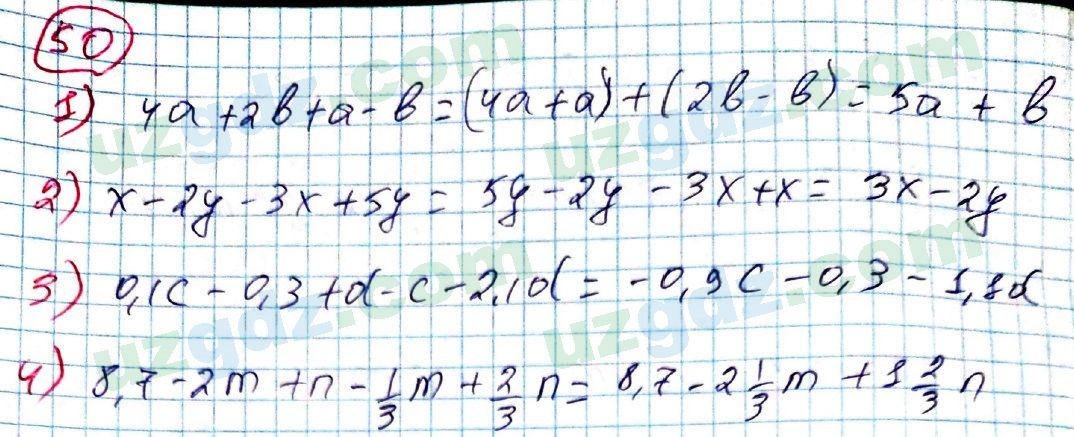 50
1) 4a+2b+a-b=(4a+a)+(2b-b)=5a+b
2) x-2y-3x+5y=5y-2y-3x+x=3x-2y
3) 0,1c-0,3+d-c-2,1d=-0,9c-0,3-1,1d
4) 8,7-2m+n-1/3m+2/3n=8,7-2 1/3m+1 2/3n
uzgdz.com
uzgdz.com
uzgdz.com
uzgdz.com